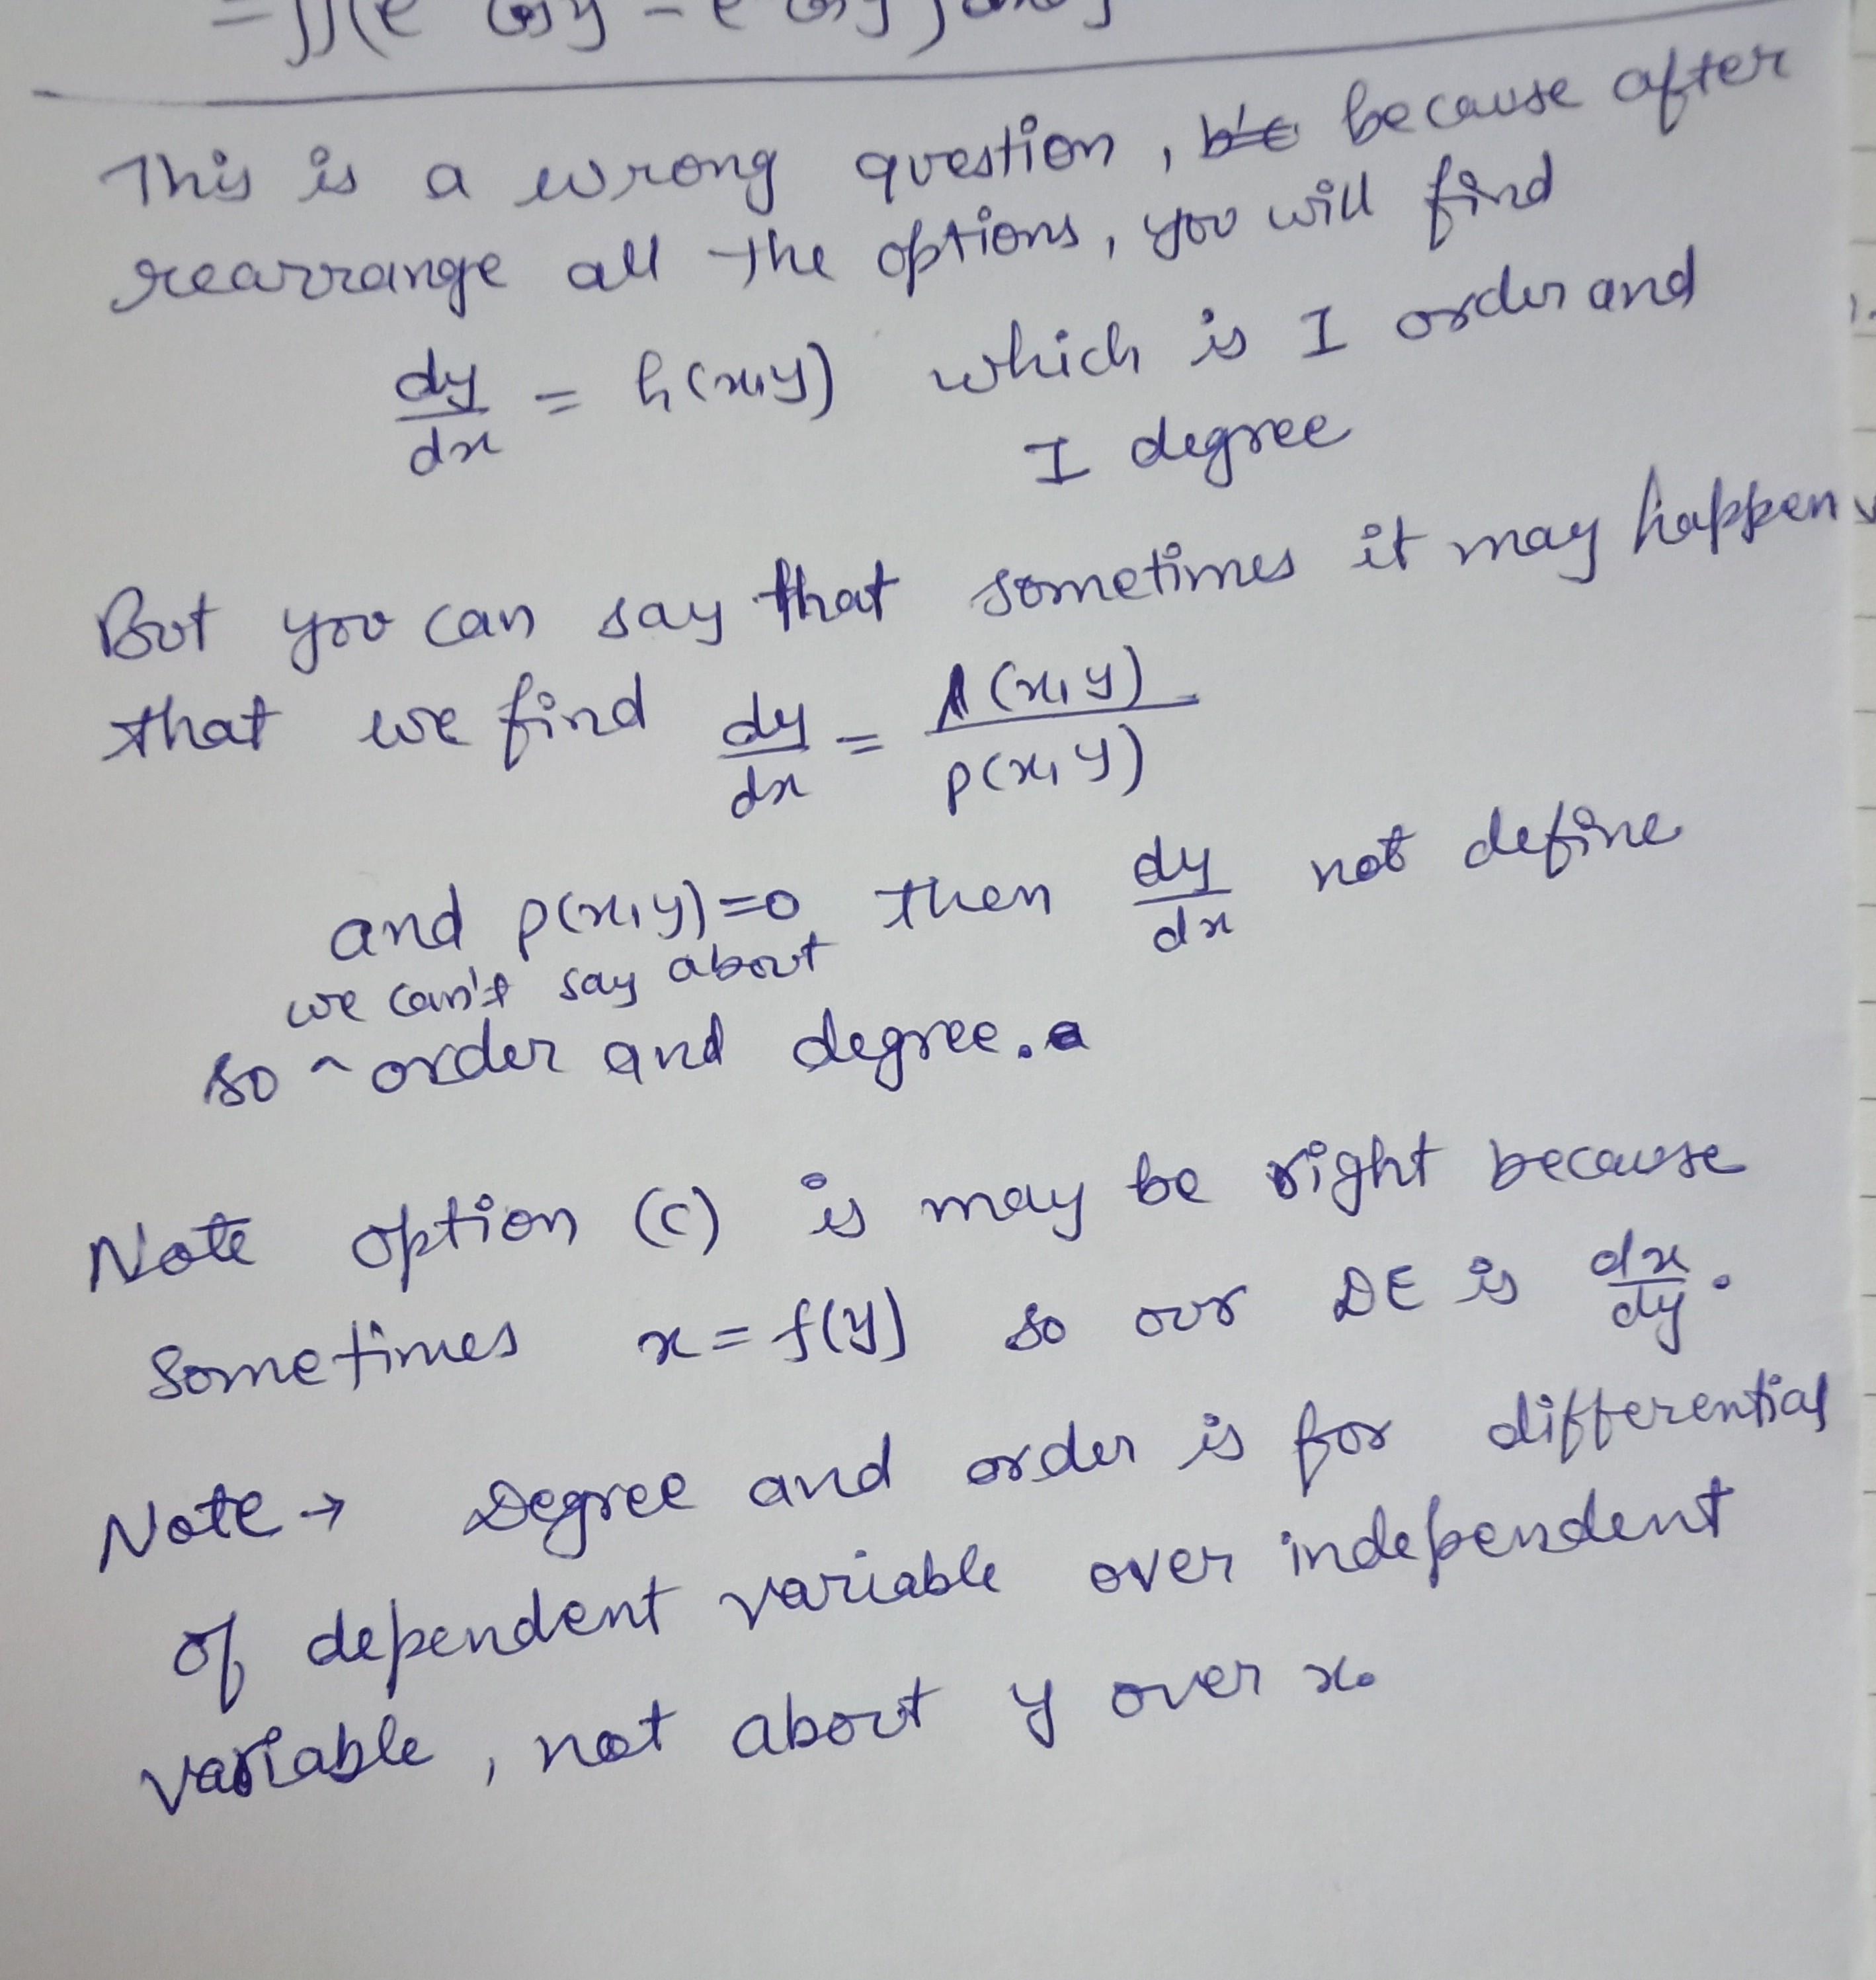 This is a wrong question, because after
rearrange all the options, you will find
dy/dx = h(x,y) which is I order and
I degree
But you can say that sometimes it may happen
that we find dy/dx = (x,y)/p(x,y)
and p(x,y)=0 then dy/dx not define
we can't say about
so ^ order and degree.
Note option (c) is may be right because
sometimes x = f(y) so our DE is dx/dy.
Note → Degree and order is for differential
of dependent variable over independent
variable, not about y over x.